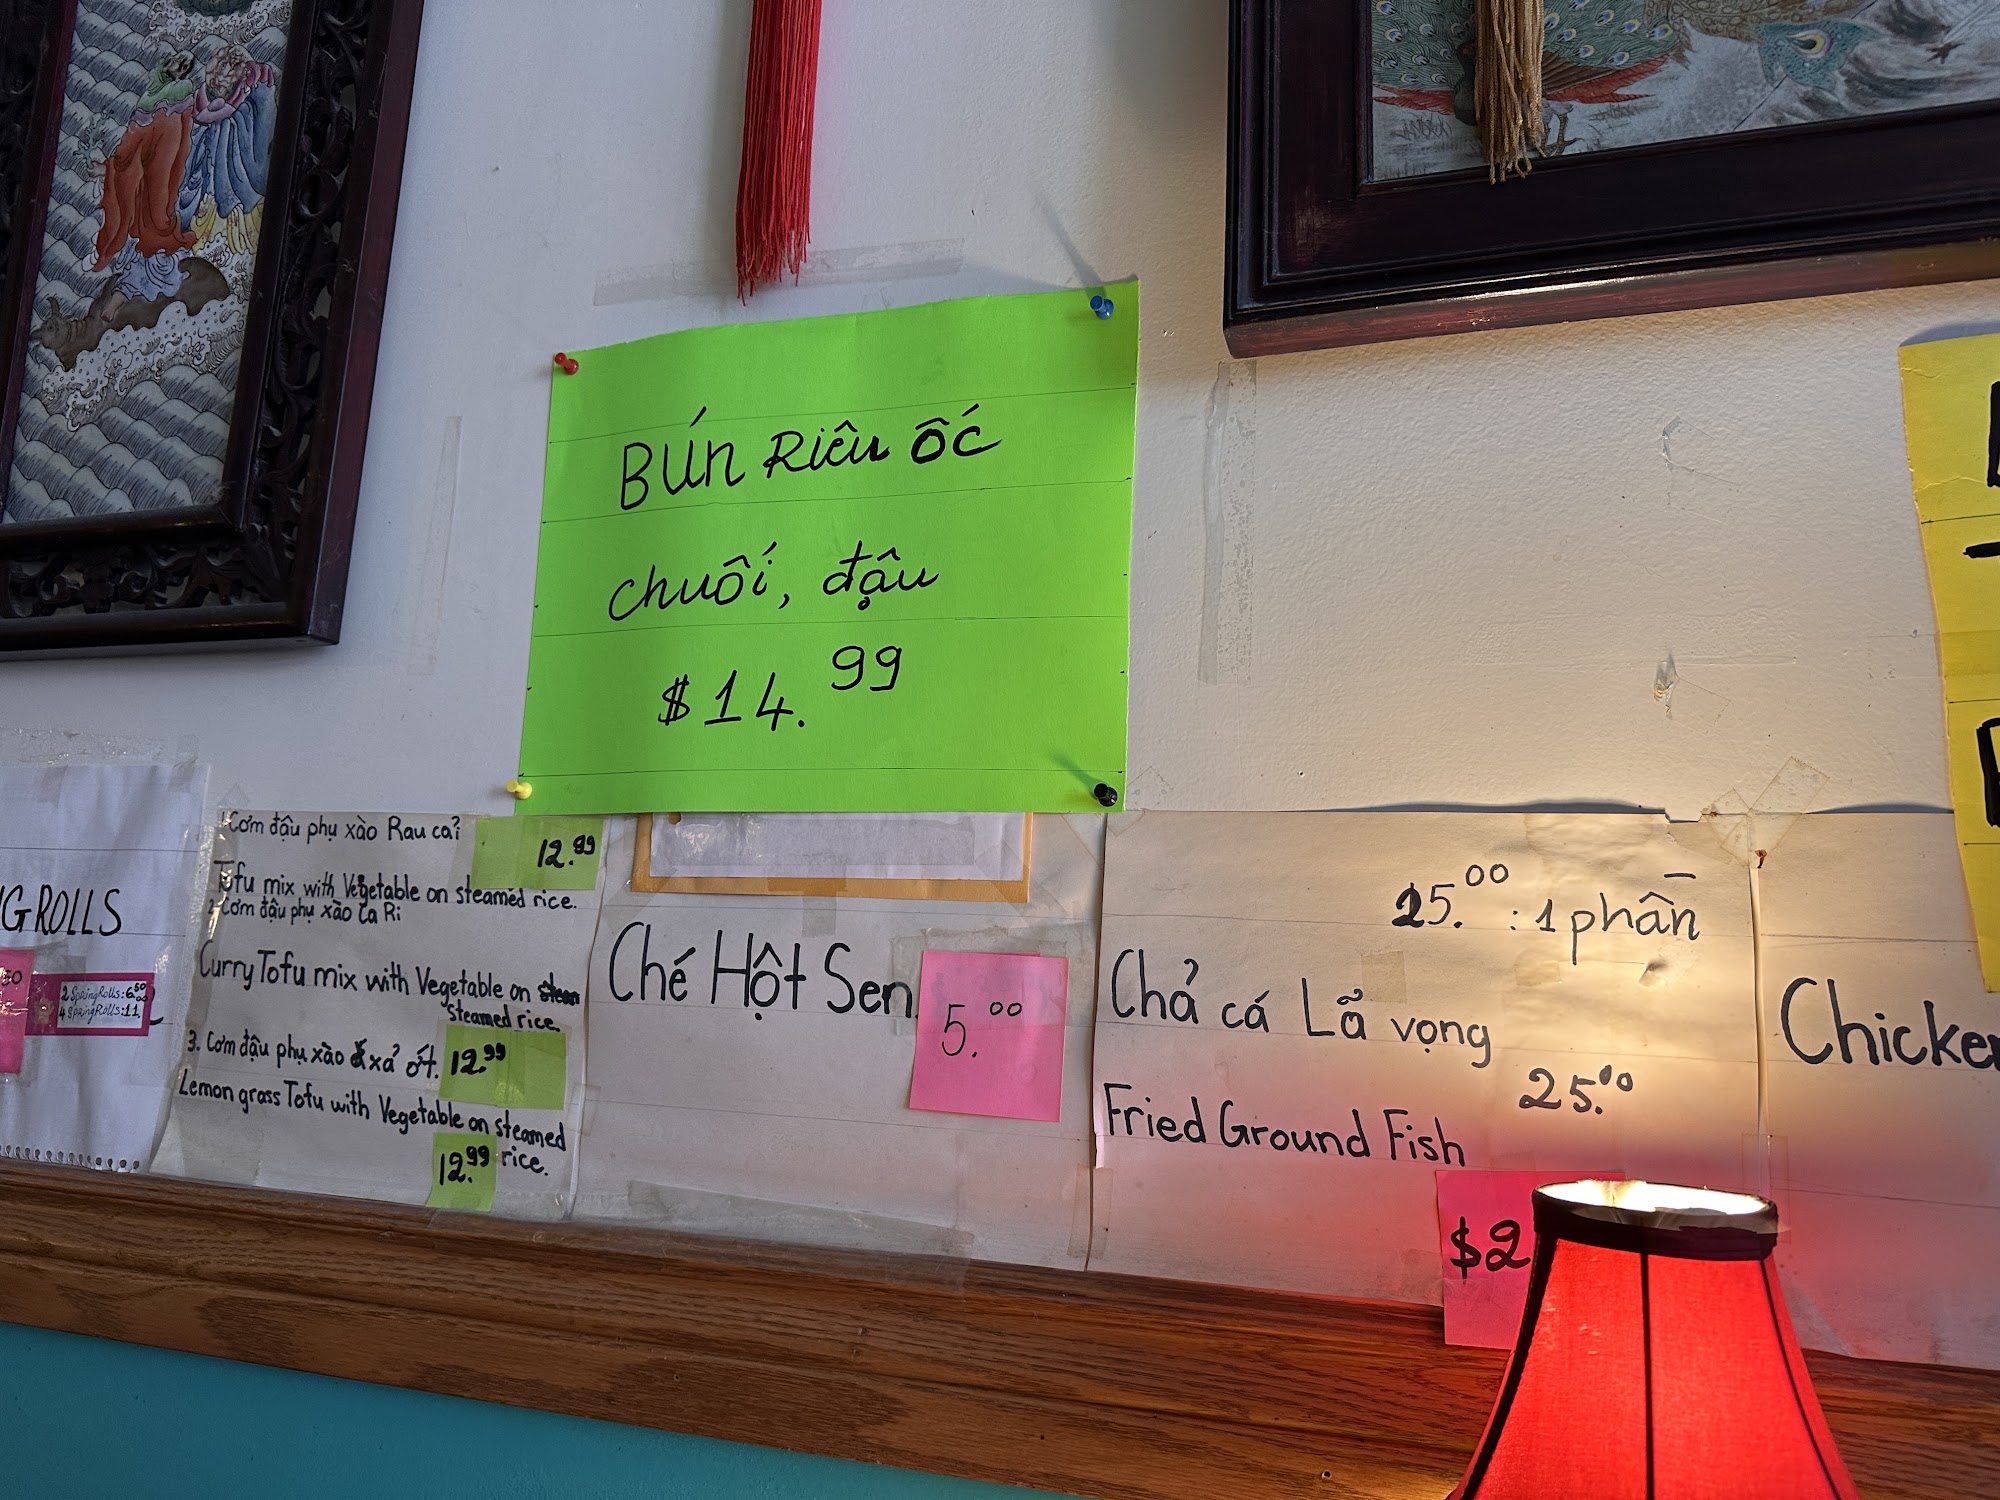 BÚN Riêu ốc
chuối, đậu
$14.99
GROLLS
50
2 Spring Rolls: 6.50
4 Spring Rolls: 11.00
1 Cơm đậu phụ xào Rau cải
12.99
Tofu mix with Vegetable on steamed rice.
2. Cơm đậu phụ xào Ca Ri
Curry Tofu mix with Vegetable on
steamed rice
3. Cơm đậu phụ xào xả ớt.
12.99
Lemon grass Tofu with Vegetable on steamed
rice.
12.99
Ché Hột Sen
5.00
25.00 : 1 phần
Chả cá Lã vọng
25.00
Fried Ground Fish
$2
Chicke